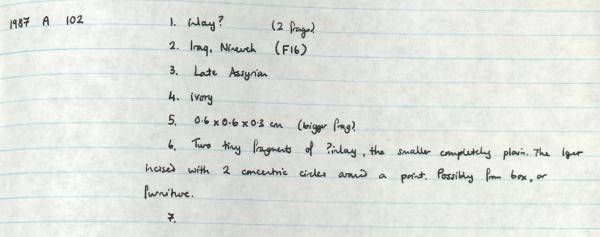 1987 A 102 1. inlay? (2 frags)
2. Iraq, Nineveh (F16)
3. Late Assyrian
4. ivory
5. 0.6 x 0.6 x 0.3 cm (bigger frag)
6. Two tiny fragments of ?inlay, the smaller completely plain. The lger
incised with 2 concentric circles around a point. Possibly from box, or
furniture.
7.